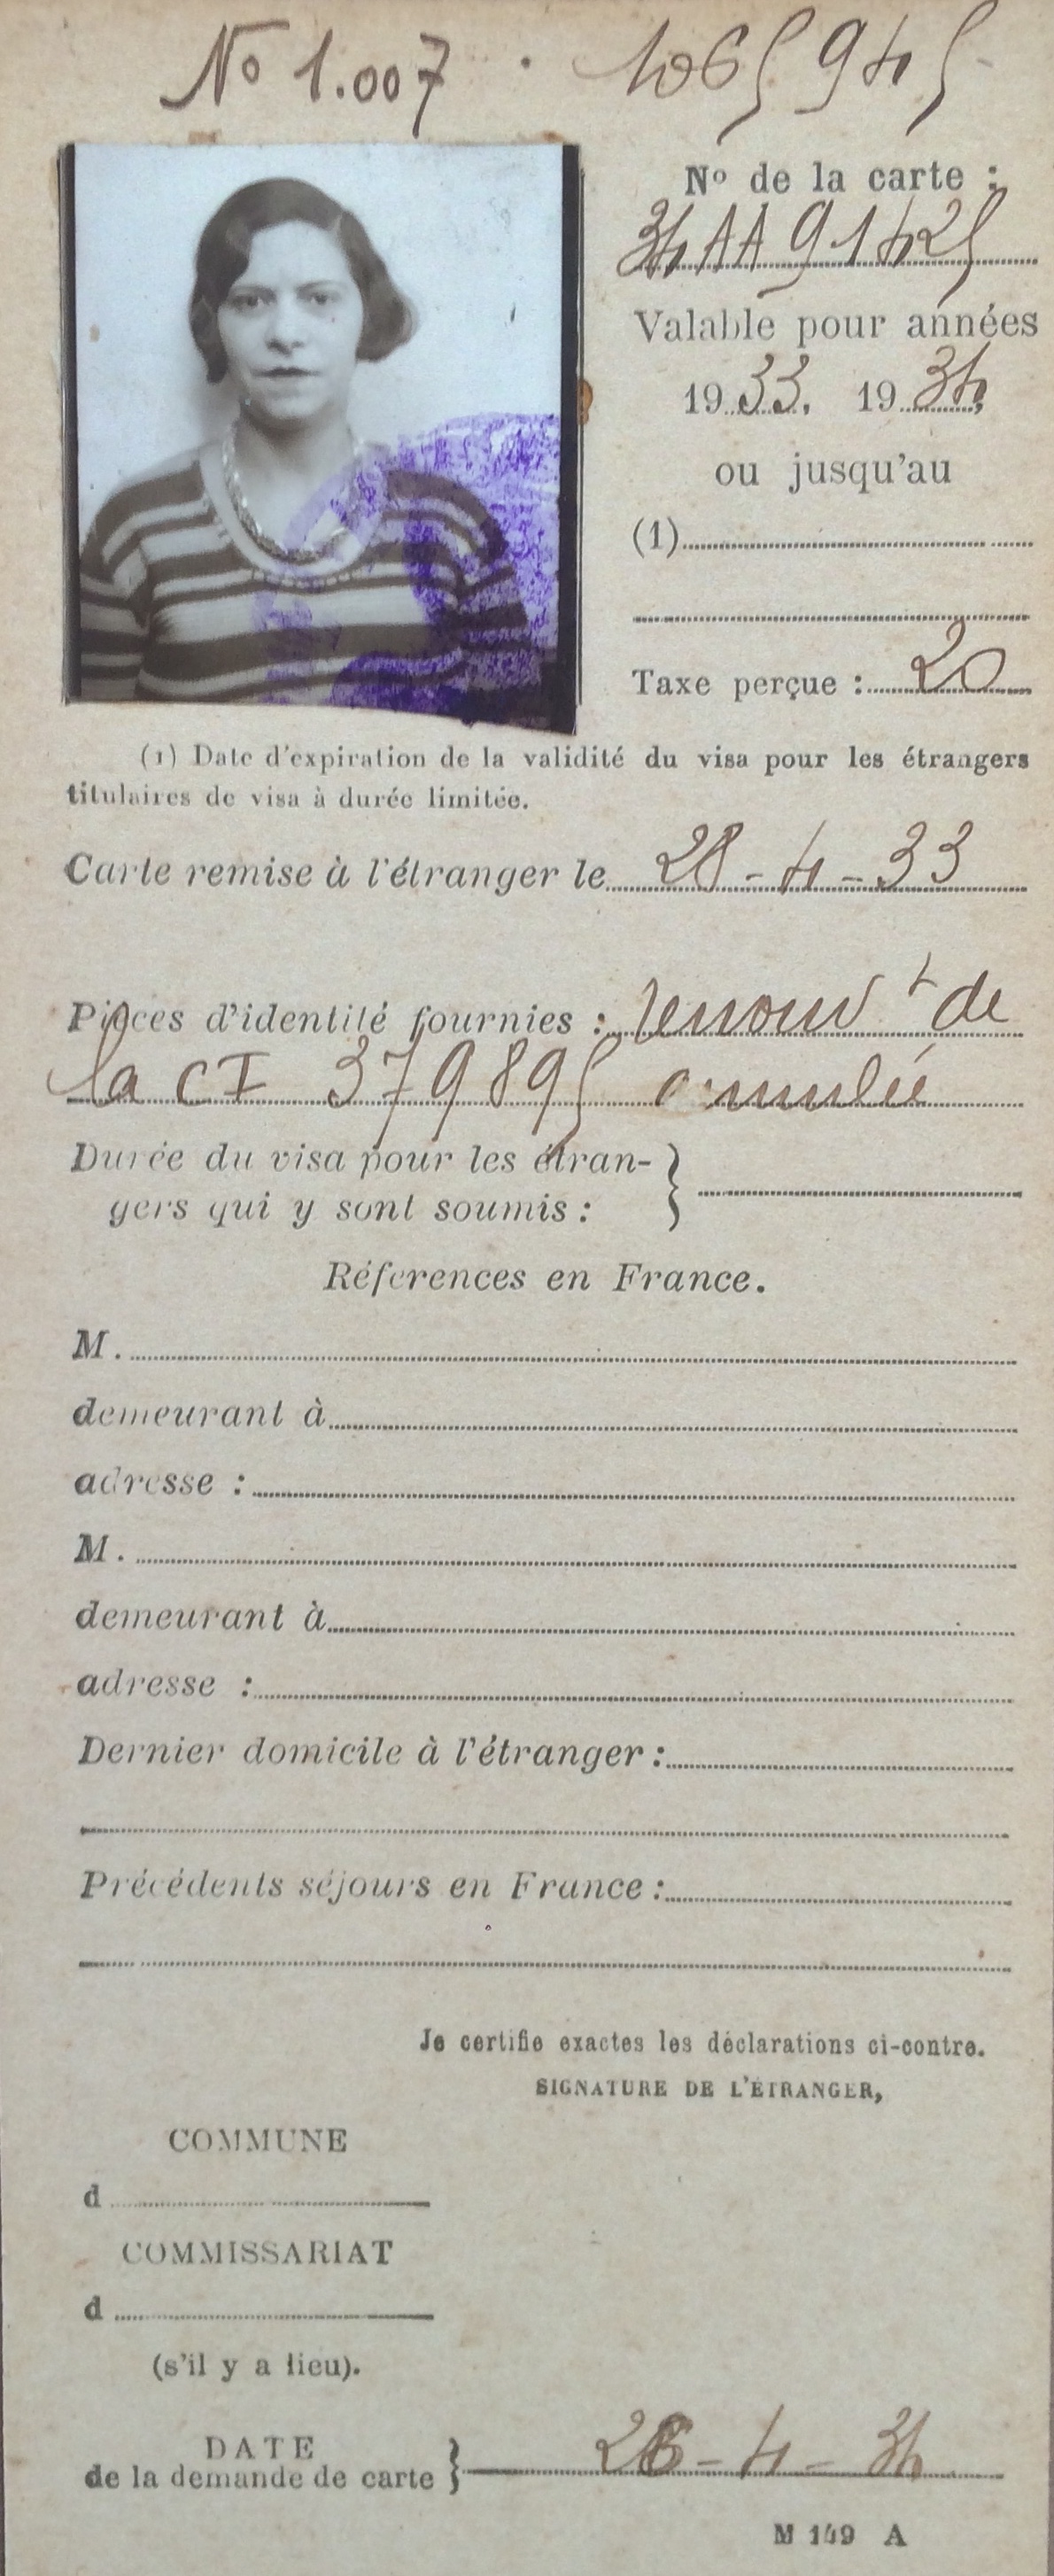 No 1.007 . 1065945
No de la carte :
34AA91425
Valable pour années
1933. 1934,
ou jusqu'au
(1)
Taxe perçue : 20
(1) Date d'expiration de la validité du visa pour les étrangers
titulaires de visa à durée limitée.
Carte remise à l'étranger le 28-4-33
Pièces d'identité fournies : renouv t de
la CI 379895 annulée
Durée du visa pour les étran-
gers qui y sont soumis : }
Réferences en France.
M.
demeurant à
adresse :
M.
demeurant à
adresse :
Dernier domicile à l'étranger :
Précédents séjours en France :
Je certifie exactes les déclarations ci-contre.
SIGNATURE DE L'ÉTRANGER,
COMMUNE
d
COMMISSARIAT
d
(s'il y a lieu).
DATE
de la demande de carte } -4-34
M 149 A